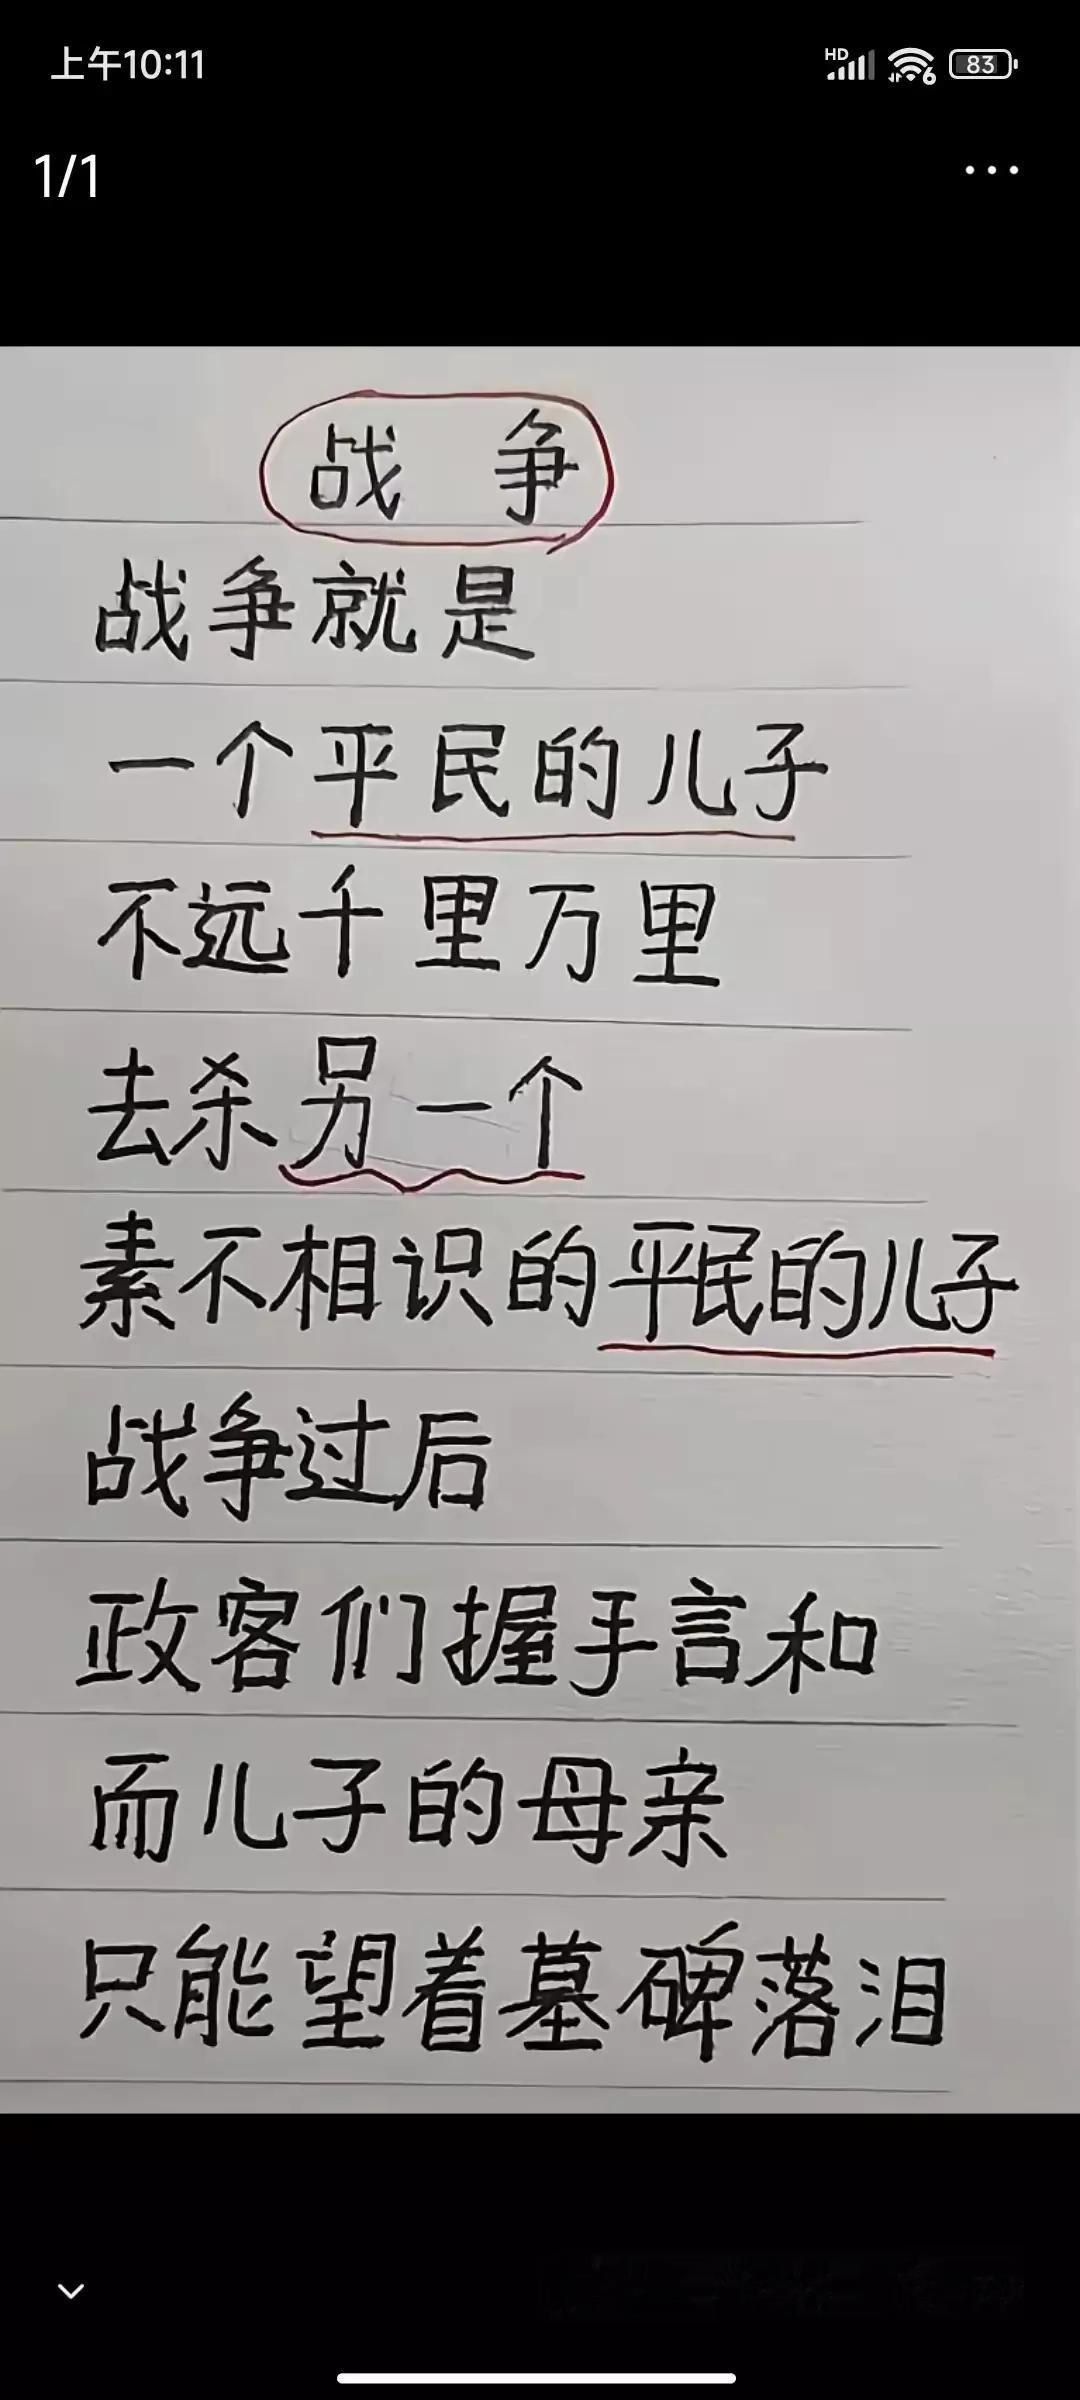 上午10:11
HD 6 83
1/1
战 争
战争就是
一个平民的儿子
不远千里万里
去杀另一个
素不相识的平民的儿子
战争过后
政客们握手言和
而儿子的母亲
只能望着墓碑落泪